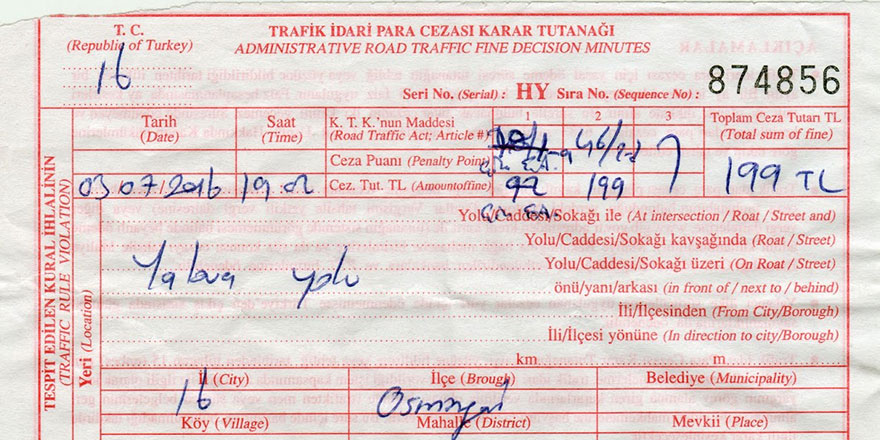 T. C.
(Republic of Turkey)
16
TRAFİK İDARİ PARA CEZASI KARAR TUTANAĞI
ADMINISTRATIVE ROAD TRAFFIC FINE DECISION MINUTES
Seri No. (Serial) : HY Sıra No. (Sequence No) : 874856
Tarih
(Date)
Saat
(Time)
K. T. K.'nun Maddesi
(Road Traffic Act; Article #)
1 2 3
46/2d
Toplam Ceza Tutarı TL
(Total sum of fine)
Ceza Puanı (Penalty Point)
03.07.2016 19.02 Cez. Tut. TL (Amountoffine) 92 199 199 TL
TESPİT EDİLEN KURAL İHLALİNİN
(TRAFFIC RULE VIOLATION)
Yeri (Location)
Yolu/Caddesi/Sokağı ile (At intersection / Roat / Street and)
Yolu/Caddesi/Sokağı kavşağında (Roat / Street)
Yalova yolu
Yolu/Caddesi/Sokağı üzeri (On Roat / Street)
önü/yanı/arkası (in front of / next to / behind)
İli/İlçesinden (From City/Borough)
İli/İlçesi yönüne (In direction to city/Borough)
km m
İl (City) İlçe (Brough) Belediye (Municipality)
16 Osmangazi
Köy (Village) Mahalle (District) Mevkii (Place)